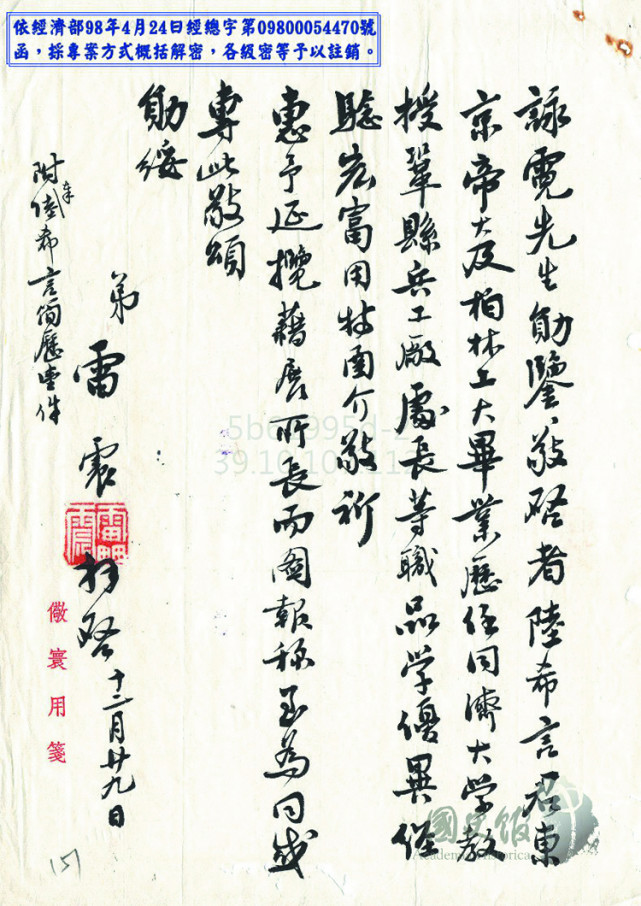 依經濟部98年4月24日經總字第09800054470號
函，採專案方式概括解密，各級密等予以註銷。
詠霓先生勛鑒敬啓者陸希言君東
京帝大及柏林工大畢業歷任同濟大学教
授鞏縣兵工廠處長等職品学優異經
驗宏富用特函介敬祈
惠予延攬藉展所長而圖報称至為同感
專此敬頌
勛綏
弟 雷震 拜啓 十二月廿九日
附陸希言簡歷壹件
儆寰用箋
國史館
Academia Historica
(5)